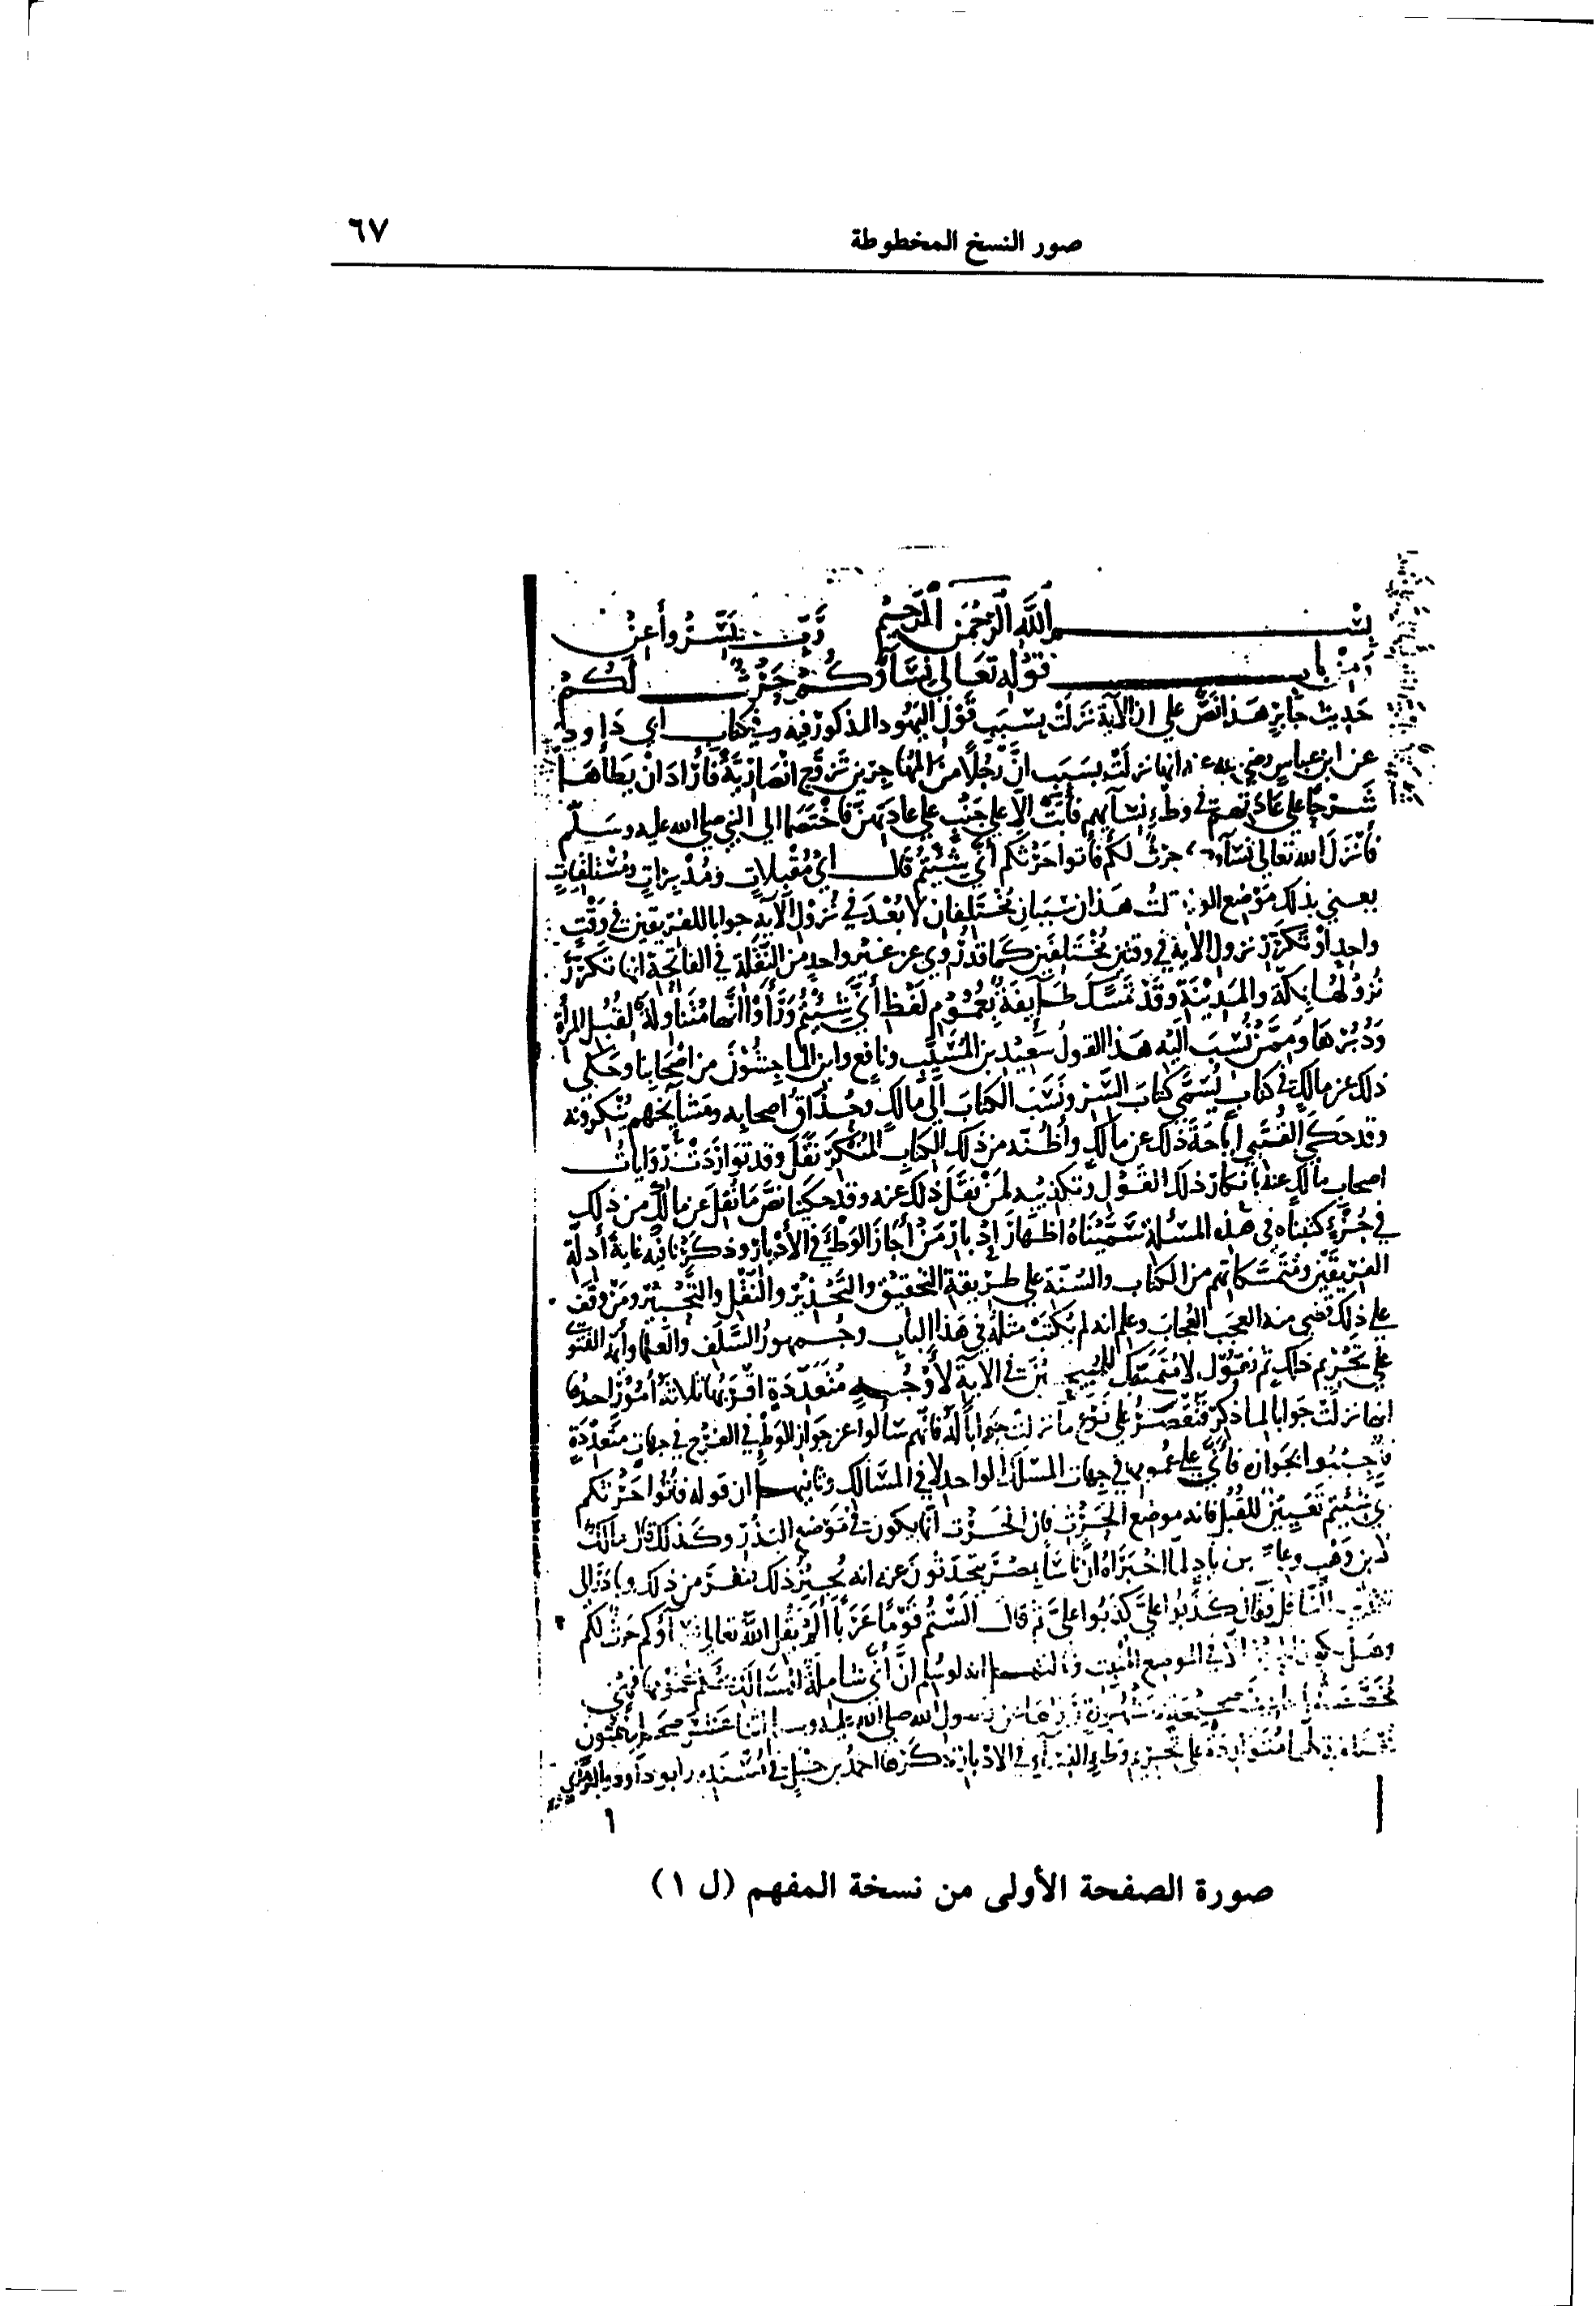 صور النسخ المخطوطة
٦٧
بسم الله الرحمن الرحيم رب يسر وأعن
ومن باب قوله تعالى نساؤكم حرث لكم
حديث جابر هذا نص على ان الآية نزلت بسبب قول اليهود المذكور فيه وفي كتاب أبي داود
عن ابن عباس رضي الله عنه انها نزلت بسبب ان رجلا من المهاجرين تزوج انصارية فأراد ان يطأها
شرحا على عادتهم في وطء نسائهم فأبت الا على جنب على عادتهن فاختصما الى النبي صلى الله عليه وسلم
فأنزل الله تعالى نساؤكم حرث لكم فأتوا حرثكم أنى شئتم قال أي مقبلات ومدبرات ومستلقيات
يعني بذلك موضع الولد قلت هذان سببان مختلفان لا بعد في نزول الآية جوابا للفريقين في وقت
واحد او تكرر نزول الآية في وقتين مختلفين كما قد روي عن غير واحد من النقلة في الفاتحة انها تكرر
نزولها بمكة والمدينة وقد تمسك طائفة بعموم لفظ أنى شئتم ورأوا انها متناولة لقبل المرأة
ودبرها وممن نسب اليه هذا القول سعيد بن المسيب ونافع وابن الماجشون من اصحابنا وحكي
ذلك عن مالك في كتاب يسمى كتاب السر ونسب الكتاب الى مالك وحذاق اصحابه ومشايخهم ينكرونه
وقد حكى العتبي اباحة ذلك عن مالك وأظنه من ذلك الكتاب المنكر نقل وقد تواردت روايات
اصحاب مالك عنه بانكار ذلك القول وتكذيبه لمن نقل ذلك عنه وقد حكينا نص ما نقل عن مالك من ذلك
في جزء كتبناه في هذه المسئلة سميناه اظهار إدبار من أجاز الوطء في الأدبار وذكرنا فيه غاية أدلة
الفريقين ومتمسكاتهم من الكتاب والسنة على طريقة التحقيق والتحرير والنقل والتحبير ومن وقف
على ذلك قضى منه العجب العجاب وعلم انه لم يكتب مثله في هذا الباب وجمهور السلف والعلماء وأئمة الفتوى
على تحريم ذلك ثم نقول لا متمسك للمبيح في الآية لأوجه متعددة اقربها ثلاثة أمور احدها
انها نزلت جوابا لما ذكر فتقصر على نوع ما نزلت جوابا له فانهم سألوا عن جواز الوطء في الفرج في جهات متعددة
فأجيبوا بجوازه فأنى على عمومها في جهات المسلك الواحد لا في المسالك وثانيها ان قوله فأتوا حرثكم
أنى شئتم تعيين للقبل فانه موضع الحرث فان الحرث انما يكون في موضع البذر وكذلك قال مالك
لابن وهب وعلي بن زياد لما اخبراه ان ناسا بمصر يتحدثون عنه انه يجيز ذلك فنفر من ذلك وبادر الى
تكذيب الناقل وقال كذبوا علي كذبوا علي ثم قال ألستم قوما عربا ألم يقل الله تعالى نساؤكم حرث لكم
وهل يكون الحرث الا في الموضع المنبت وثالثها انه لو سلم ان أنى شاملة للمسالك بحكم عمومها فهي
مخصصة بأحاديث صحيحة مشهورة رواها عن رسول الله صلى الله عليه وسلم اثنا عشر صحابيا بمتون
مختلفة كلها متواردة على تحريم وطء النساء في الأدبار ذكرها احمد بن حنبل في مسنده وابو داود والترمذي
١
صورة الصفحة الأولى من نسخة المفهم (ل ١)